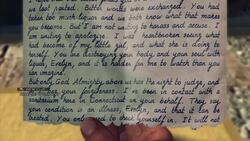 we last visited. Bitter words were exchanged. You had
taken too much liquor and we both know what that makes
you become. But I am not writing to harass and accuse. I
am writing to apologize. I was heartbroken seeing what
had become of my little girl, and what she is doing to
herself. You are destroying your body and your soul with
liquor, Evelyn, and it is harder for me to watch than you
can imagine.
But only God Almighty above us has the right to judge, and
your forgiveness. I've been in contact with
sanitarium here in Connecticut on your behalf. They say
your condition is an illness, Evelyn, and that it can be
treated. You only need to check yourself in. It will not